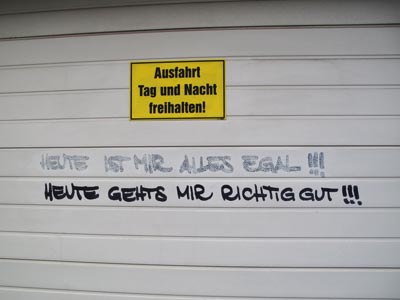 Ausfahrt
Tag und Nacht
freihalten!
HEUTE IST MIR ALLES EGAL!!!
HEUTE GEHTS MIR RICHTIG GUT!!!